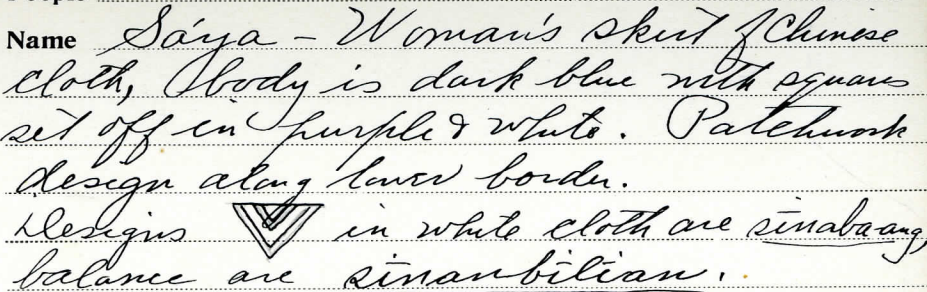 Name Sáya - Woman's skirt of Chinese
cloth, body is dark blue with squares
set off in purple & white. Patchwork
design along lower border.
Designs in white cloth are sinaba-ang,
balance are sinanbilian.